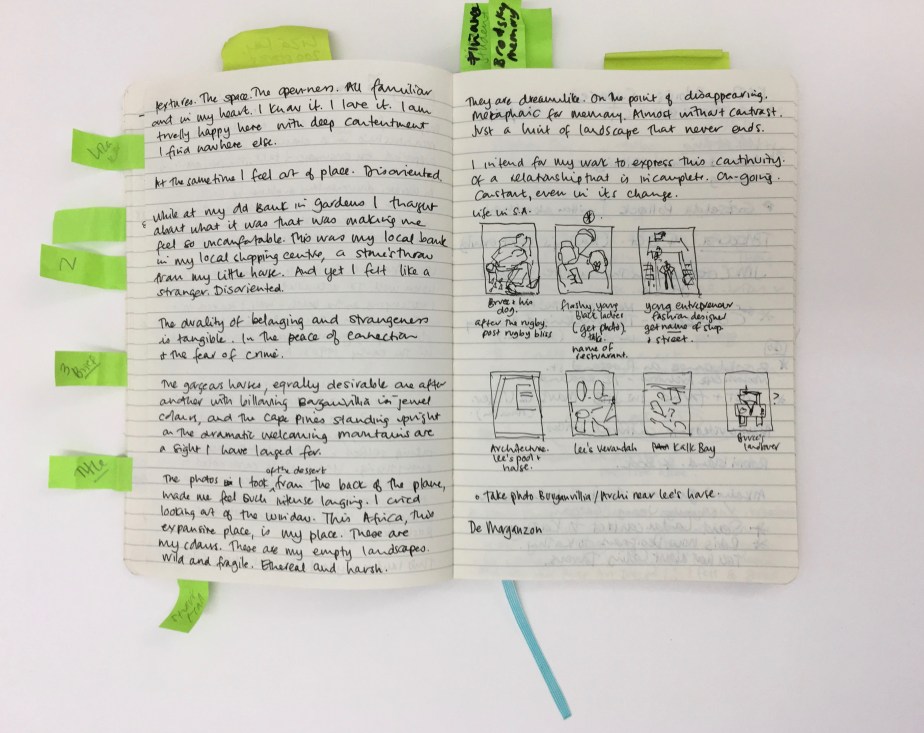 Brodsky
memory
2
3 Bruce
Title
textures. The space. The openness. All familiar
and in my heart. I know it. I love it. I am
truelly happy here with deep contentment
I find nowhere else.
At the same time I feel out of place. Disoriented.
While at my old Bank in Gardens I thought
about what it was that was making me
feel so uncomfortable. This was my local bank
in my local shopping centre, a stone's throw
from my little house. And yet I felt like a
stranger. Disoriented.
The duality of belonging and strangeness
is tangible. In the peace of connection
+ the fear of crime.
The gorgeous houses, equally desirable one after
another with billowing Bouganvillia in jewel
colours, and the Cape Pines standing upright
on the dramatic welcoming mountains are
a sight I have longed for.
of the dessert
The photos I took from the back of the plane,
made me feel such intense longing. I cried
looking out of the window. This Africa, this
expansive place, is my place. These are
my colours. These are my empty landscapes.
Wild and fragile. Ethereal and harsh.
They are dreamlike. On the point of disappearing.
Metaphoric for memory. Almost without contrast.
Just a hint of landscape that never ends.
I intend for my work to express this continuity.
Of a relationship that is incomplete. On-going.
Constant, even in its change.
Life in S.A.
Bruce + his
dog.
after the rugby.
post rugby bliss
flashy, young
Black ladies
(get photo)
name of
restaurant.
young entrepreneur
fashion designer
get name of shop
+ street.
Architecture.
Lee's pool +
house.
Lee's Verandah
Kalk Bay
?
Bruce's
landrover
Take photo Bouganvillia/Archi near Lee's house.
De Maganzon